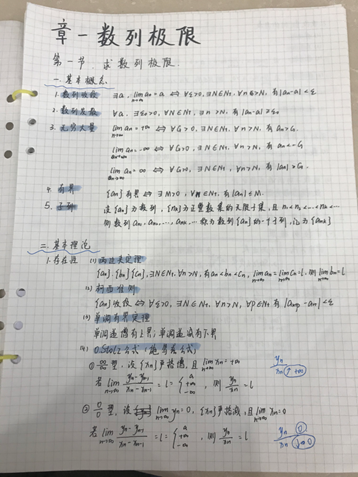 章一 数列极限
第一节 求数列极限
一. 基本概念
1. 数列收敛 ∃a, lim an = a ⇔ ∀ε>0, ∃N∈N+, ∀n>N, 有|an-a|<ε.
2. 数列发散 ∀a, ∃ε0>0, ∀N∈N+, ∃n>N, 有|an-a|≥ε0
3. 无穷大量 lim an = +∞ ⇔ ∀G>0, ∃N∈N+, ∀n>N, 有 an>G.
lim an = -∞ ⇔ ∀G>0, ∃N∈N+, ∀n>N, 有 an<-G
lim an = ∞ ⇔ ∀G>0, ∃N∈N+, ∀n>N, 有 |an|>G.
4. 有界 {an}有界 ⇔ ∃M>0, ∀n∈N+, 有|an|≤M.
5. 子列 设{an}为数列, {nk}为正整数集的无限子集, 且n1<n2<…<nk<…
则数列an1, an2, …, ank, …称为数列{an}的一个子列, 记为{ank}
二. 基本理论
1. 存在性 (1) 两边夹定理
{an}, {bn}, {cn}, ∃N∈N+, ∀n>N, 有an<bn<cn, lim an = lim cn = l, 则lim bn = l
(2) 柯西准则
{an}收敛 ⇔ ∀ε>0, ∃N∈N+, ∀n>N, ∀p∈N+ 有|an+p-an|<ε
(3) 单调有界定理
单调递增有上界; 单调递减有下界
(4) O.Stolz公式
① 型, 设{xn}严格增, 且 lim xn = +∞ yn
xn (↑+∞)
若 lim yn-yn-1 / xn-xn-1 = l = { a +∞ -∞ , 则 yn/xn = l
② 0/0 型, 设 lim yn = 0, {xn}严格减, 且 lim xn = 0
若 lim yn-yn-1 / xn-xn-1 = l = { a +∞ -∞ 则 yn/xn = l yn (0)
xn (↓0)